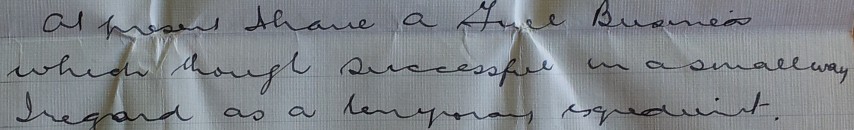 at present I have a Fuel Business
which though successful in a small way
I regard as a temporary expedient.